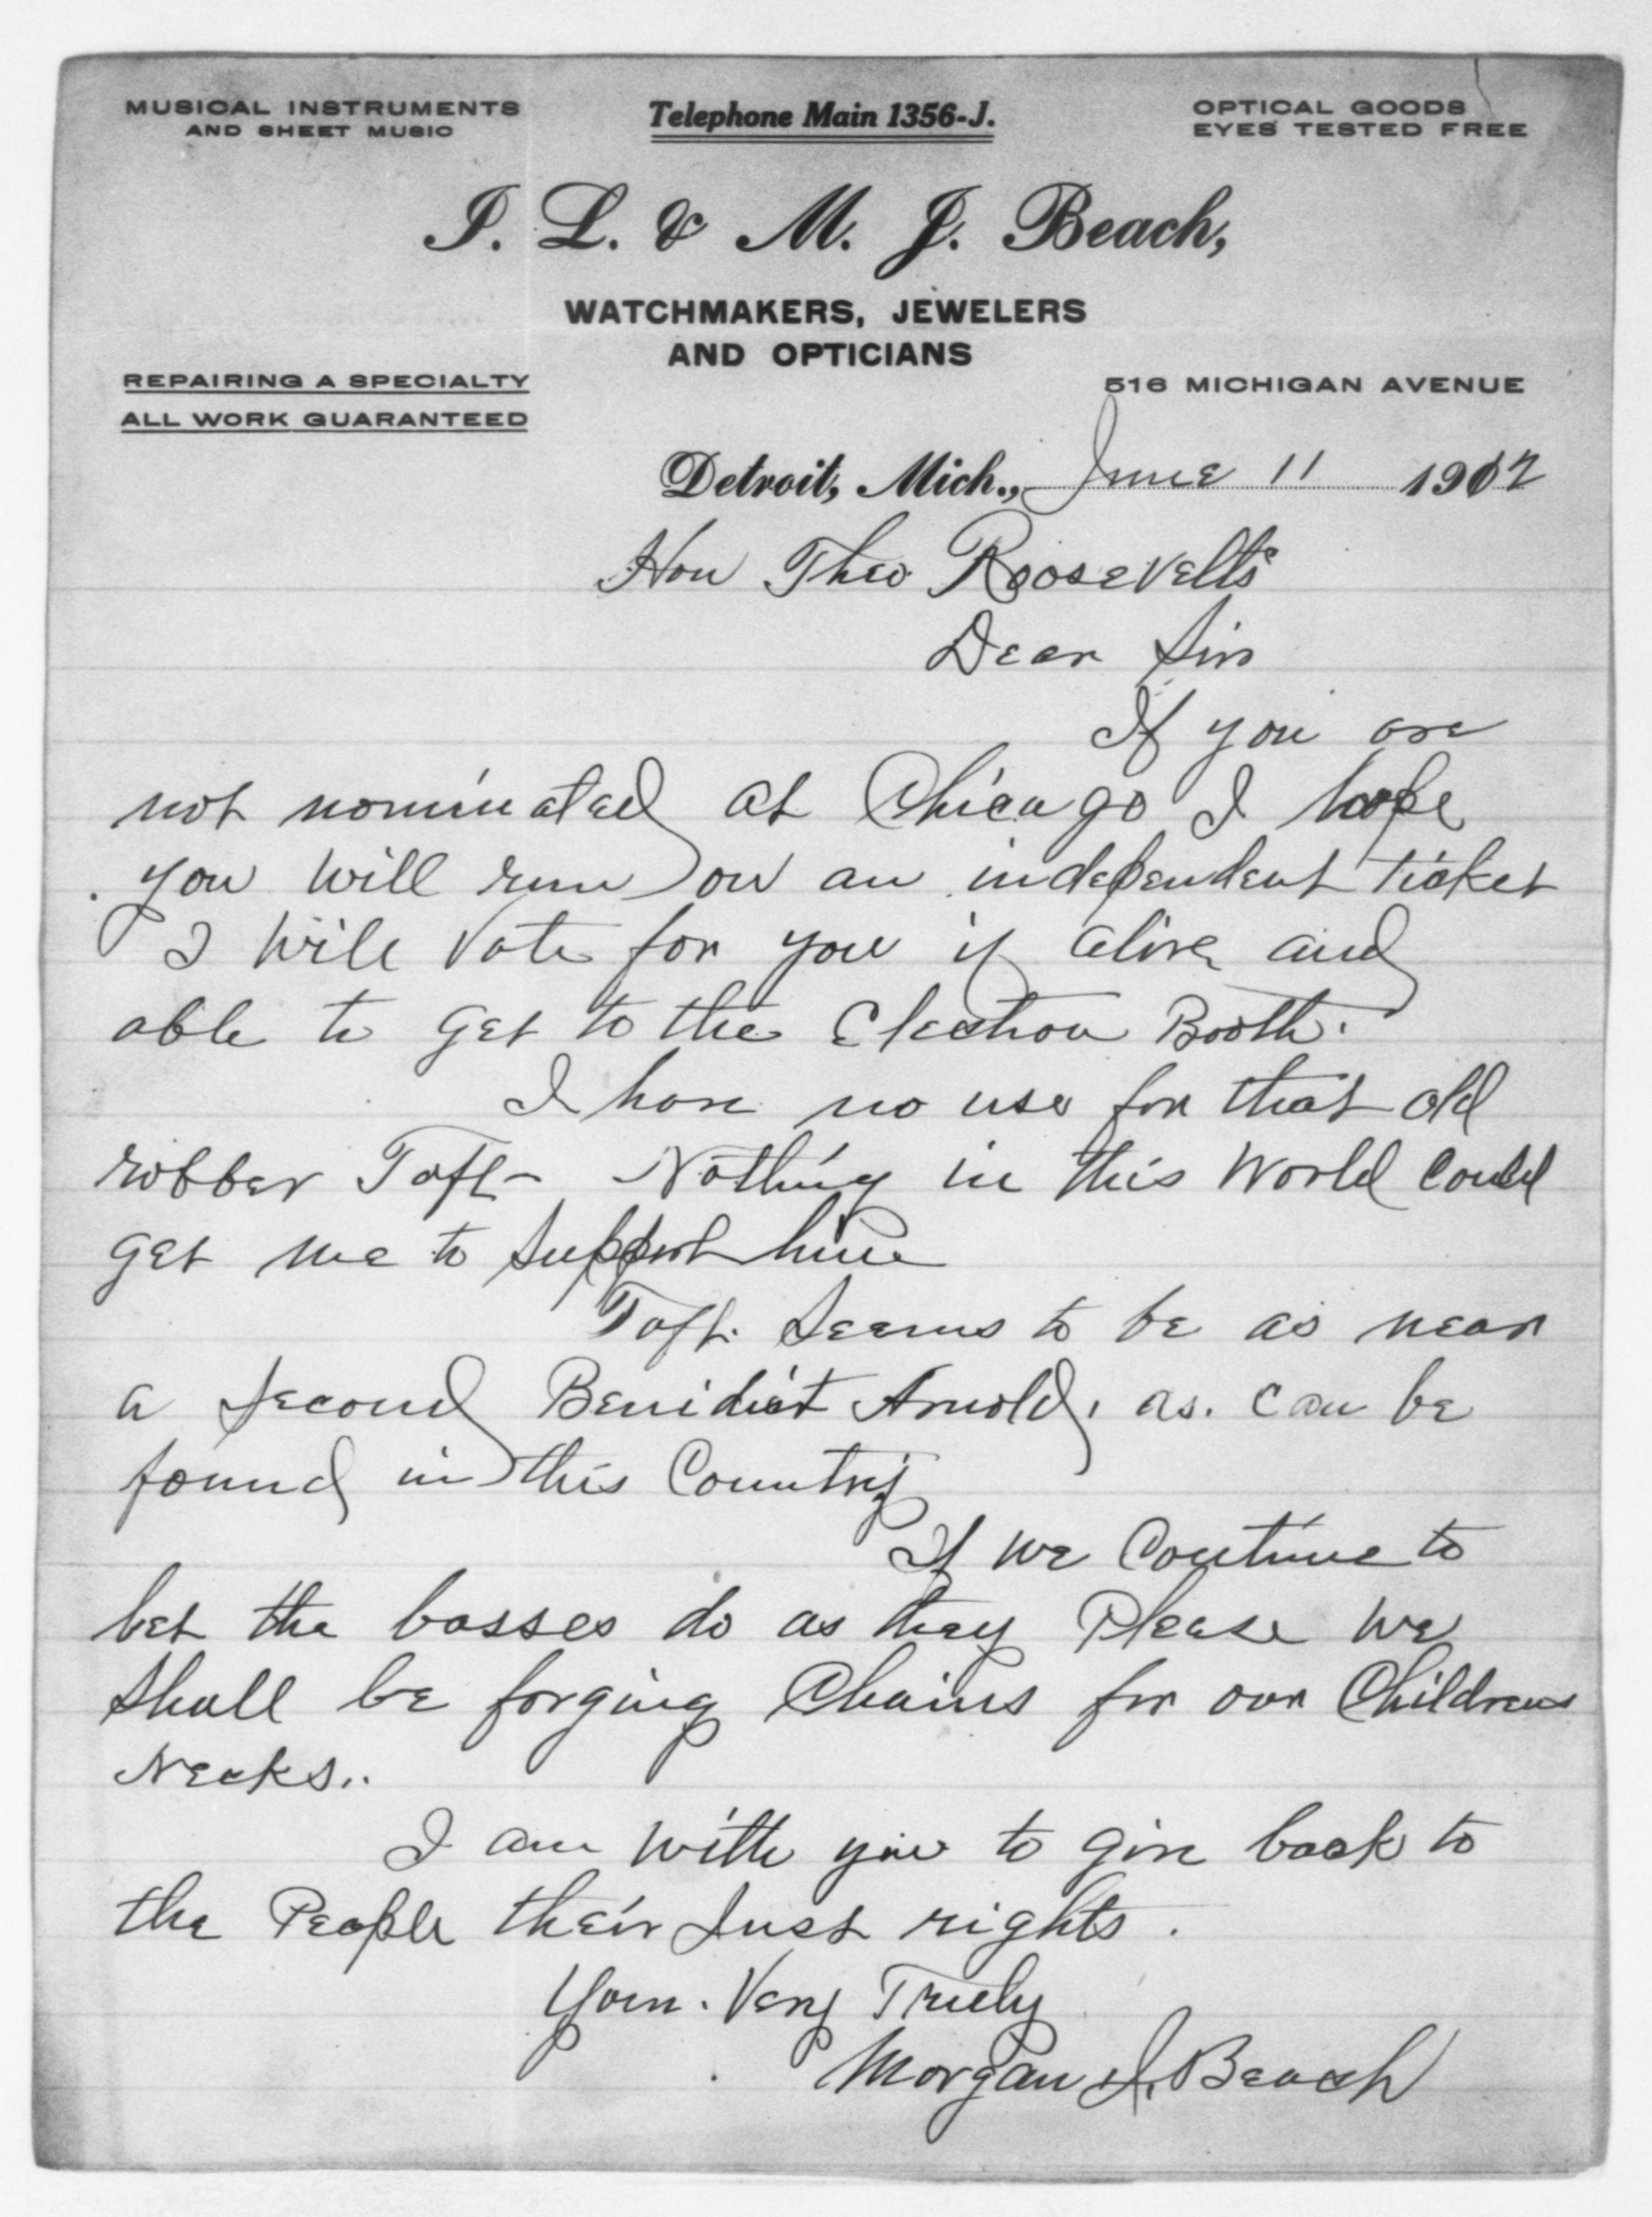 MUSICAL INSTRUMENTS
AND SHEET MUSIC
Telephone Main 1356-J.
OPTICAL GOODS
EYES TESTED FREE
I. L. & M. J. Beach,
WATCHMAKERS, JEWELERS
AND OPTICIANS
REPAIRING A SPECIALTY
ALL WORK GUARANTEED
516 MICHIGAN AVENUE
Detroit, Mich., June 11 1912
Hon Theo Roosevelts
Dear Sir
If you are
not nominated at Chicago I hope
you will run on an independent ticket
I will Vote for you if alive and
able to get to the Election Booth.
I have no use for that old
robber Taft- Nothing in this World Could
get me to Support him
Taft. Seems to be as near
a second Benidict Arnold, as. can be
found in this Country
If we Continue to
let the bosses do as they Please we
Shall be forging Chains for our Childrens
Necks..
I am with you to give back to
the People their Just rights.
Your. Very Truly
Morgan J. Beach